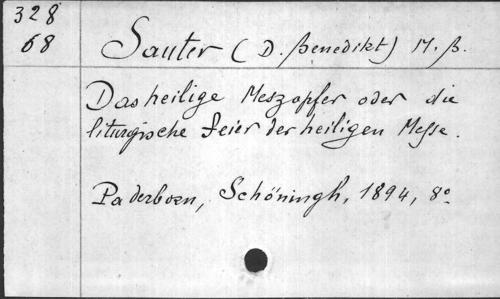 328
68
Sauter (D. Benedikt) M. B.
Das heilige Meszopfer oder die
liturgische Feier der heiligen Messe.
Paderborn, Schöningh, 1894, 8º